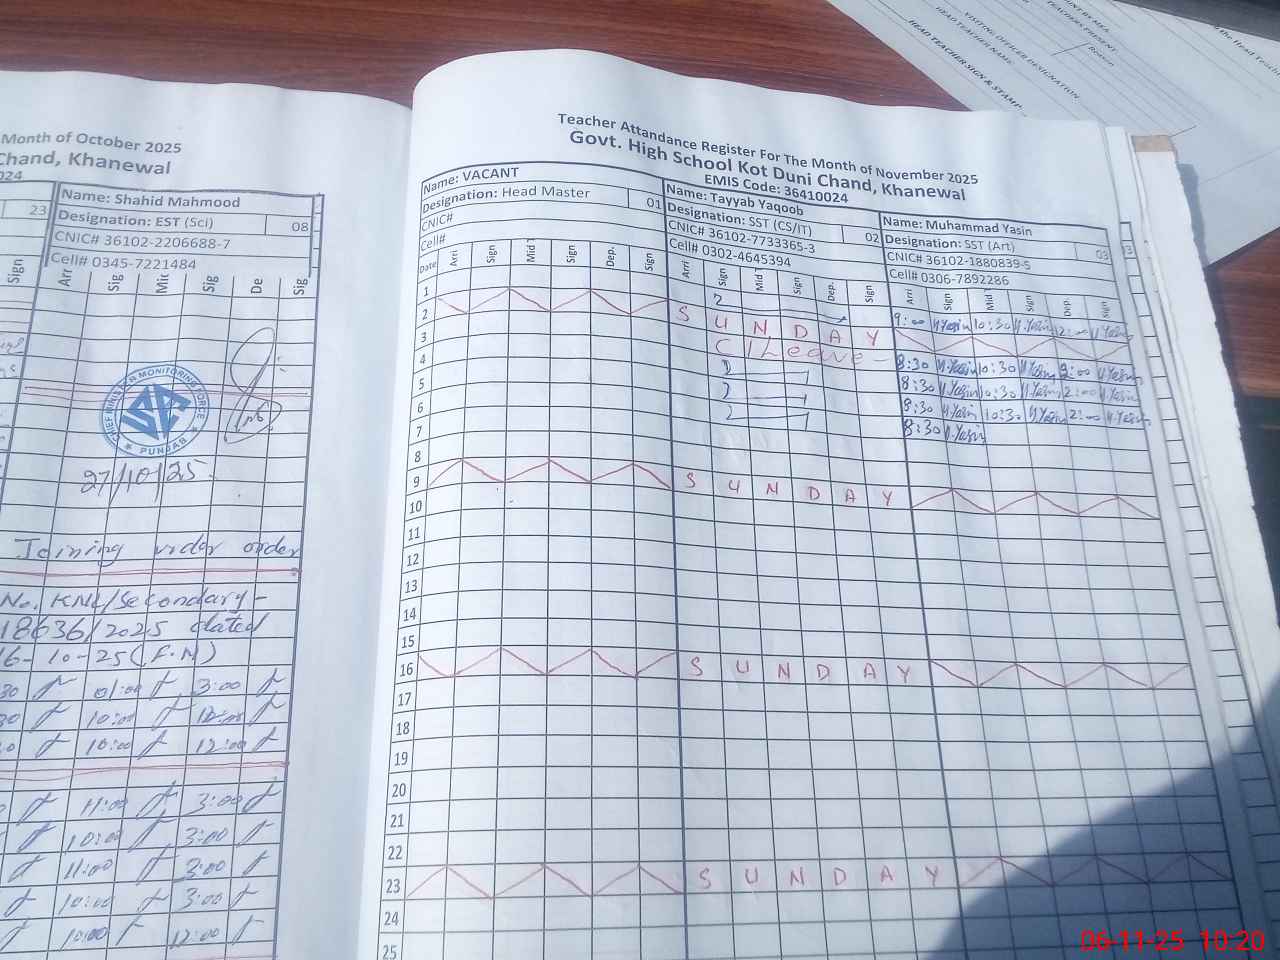 Month of October 2025
Chand, Khanewal
024
23
Name: Shahid Mahmood
Designation: EST (Sci)
08
CNIC# 36102-2206688-7
Cell# 0345-7221484
Sign Arr Sig Mic Sig De Sig
CHIEF MINISTER MONITORING FORCE
PUNJAB
27/10/25
Joining under order
No. KNL/Secondary-
18636/2025 dated
16-10-25 (F.N)
30 01:00 3:00
30 10:00 12:00
10:00 12:00
11:00 3:00
10:00 3:00
11:00 3:00
10:00 3:00
10:00 12:00
Teacher Attandance Register For The Month of November 2025
Govt. High School Kot Duni Chand, Khanewal
EMIS Code: 36410024
Name: VACANT
Designation: Head Master
01
CNIC#
Cell#
Date Arri Sign Mid Sign Dep. Sign
Name: Tayyab Yaqoob
Designation: SST (CS/IT)
02
CNIC# 36102-7733365-3
Cell# 0302-4645394
Arri Sign Mid Sign Dep. Sign
Name: Muhammad Yasin
Designation: SST (Art)
03
CNIC# 36102-1880839-5
Cell# 0306-7892286
Arri Sign Mid Sign Dep. Sign
1 9:00 M.Yasin 10:30 M.Yasin 12:00 M.Yasin
2 S U N D A Y
3 C/Leave - 8:30 M.Yasin 10:30 M.Yasin 2:00 M.Yasin
4 8:30 M.Yasin 10:30 M.Yasin 2:00 M.Yasin
5 8:30 M.Yasin 10:30 M.Yasin 2:00 M.Yasin
6 8:30 M.Yasin
7
8
9 S U N D A Y
10
11
12
13
14
15
16 S U N D A Y
17
18
19
20
21
22
23 S U N D A Y
24
25
TEACHERS PRESENT:
Reason
VISITING OFFICER DESIGNATION
HEAD TEACHER NAME:
HEAD TEACHER SIGN & STAMP:
the Head Teacher
06-11-25 10:20